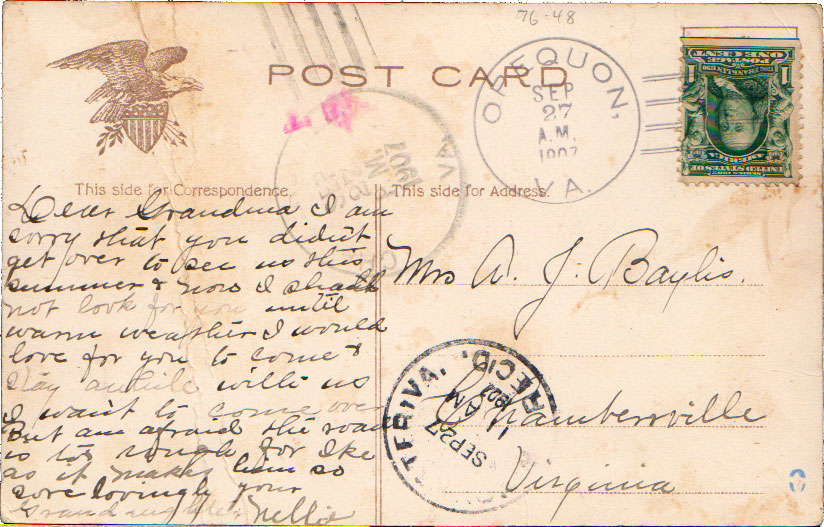 76-48
POST CARD
OPEQUON,
SEP
27
A.M.
1907
VA.
ONE CENT
POSTAGE
1 1
UNITED STATES OF
AMERICA
VA
1907
This side for Correspondence.
This side for Address.
Dear Grandma I am
sorry that you didn't
get over to see us this
summer & now I shall
not look for you until
warm weather I would
love for you to come &
stay awhile with us
I want to come over
But am afraid the road
is too rough for Ike
as it makes him so
sore lovingly your
Granddaughter Nellie
Mrs A. J. Baylis.
Chambersville
Virginia
TER, VA.
REC'D.
SEP 27
11 AM
1907